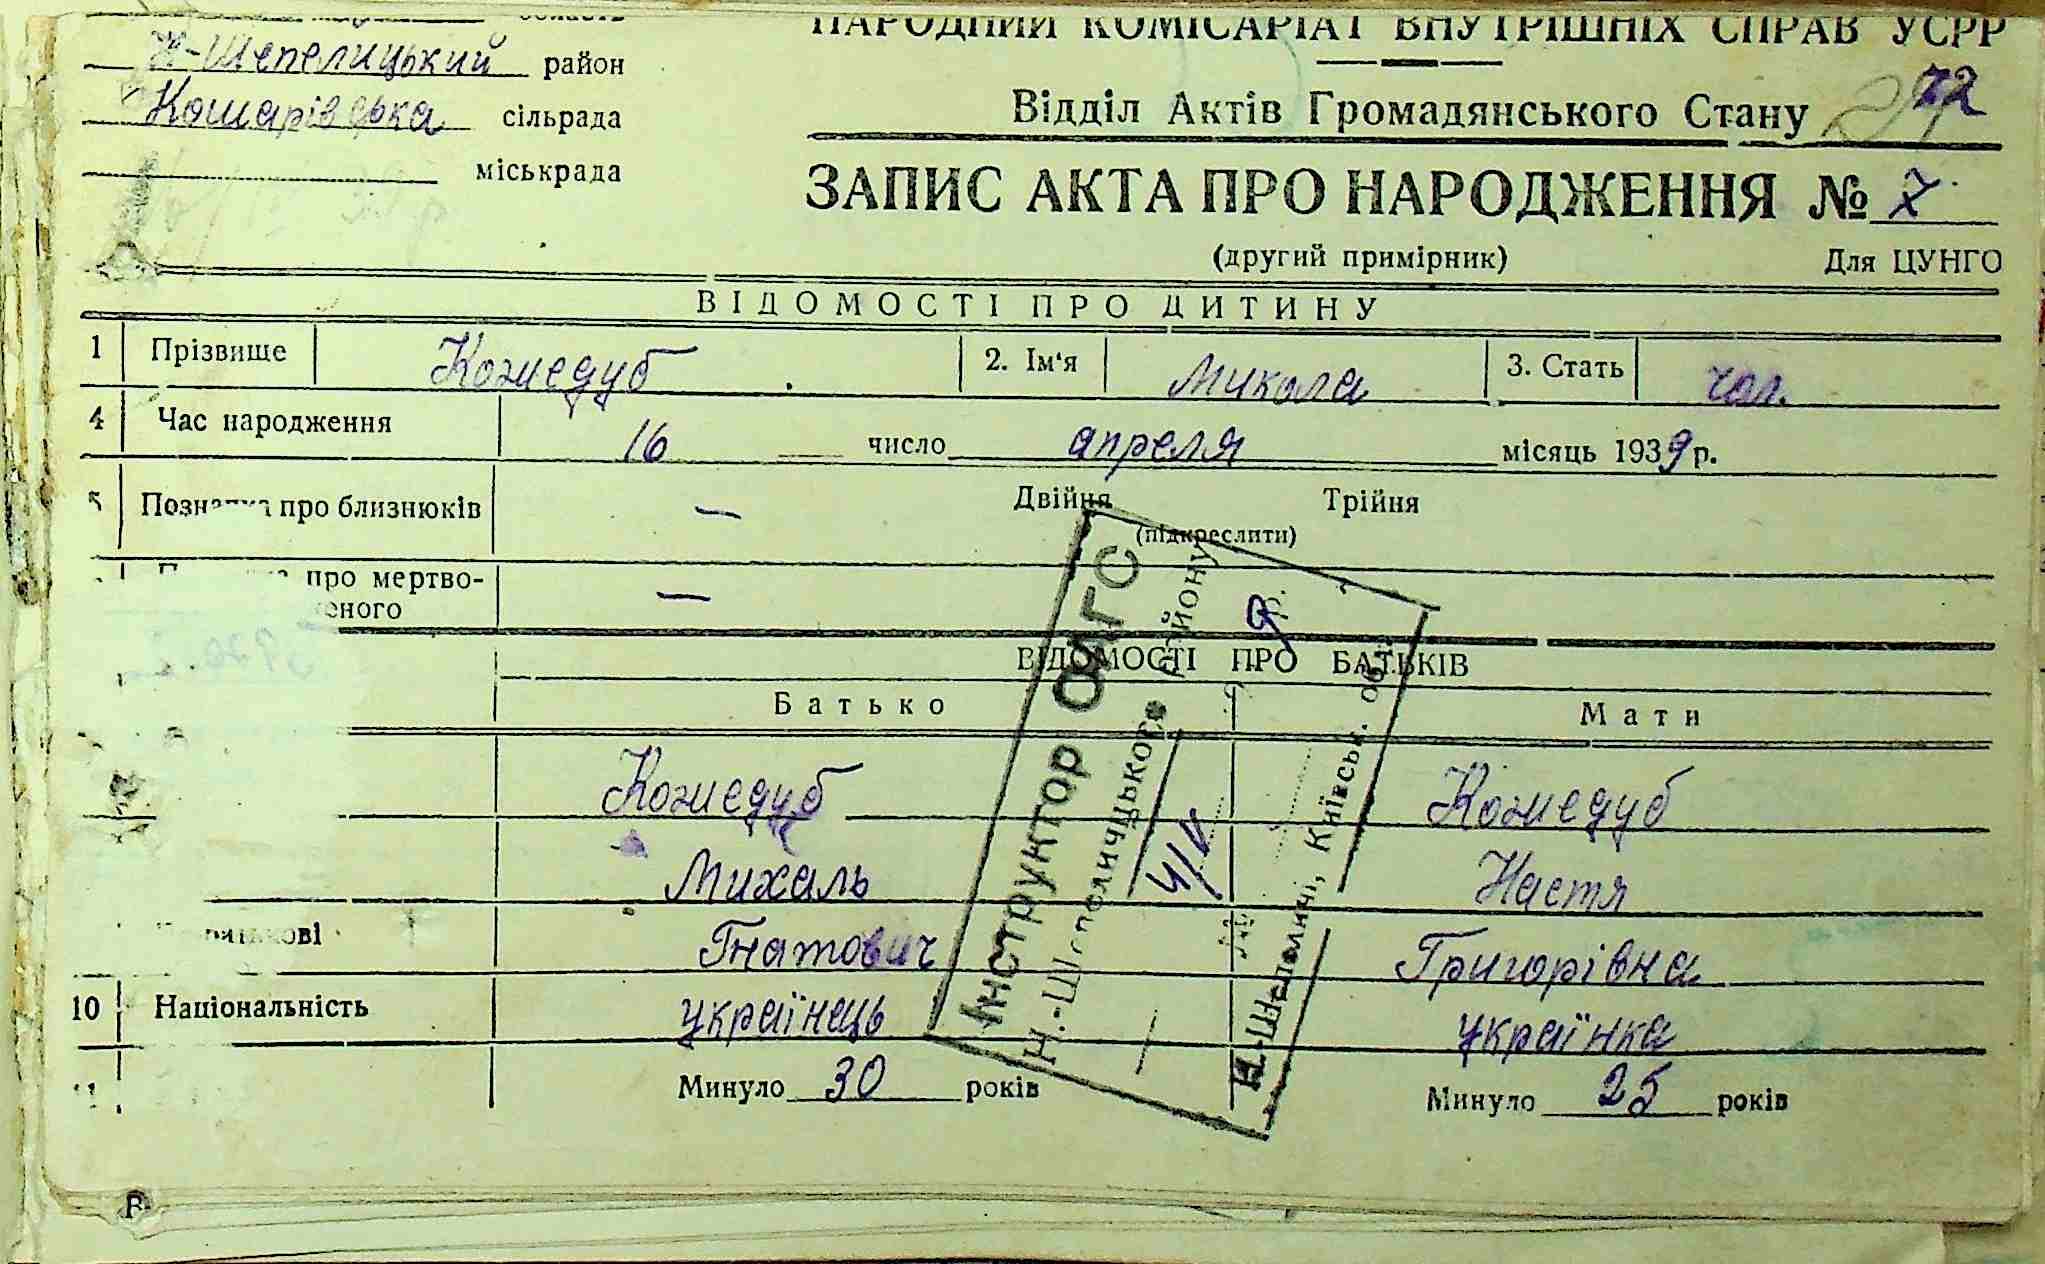 область
Н-Шепелицький район
Кошарівська сільрада
міськрада
НАРОДНИЙ КОМІСАРІАТ ВНУТРІШНІХ СПРАВ УСРР
Відділ Актів Громадянського Стану
72
ЗАПИС АКТА ПРО НАРОДЖЕННЯ № 7
(другий примірник) Для ЦУНГО
ВІДОМОСТІ ПРО ДИТИНУ
1 Прізвище Кожедуб 2. Ім'я Микола 3. Стать чол.
4 Час народження 16 число апреля місяць 1939 р.
5 Познака про близнюків — Двійня Трійня
(підкреслити)
про мертво-
еного —
ВІДОМОСТІ ПРО БАТЬКІВ
Батько Мати
Кожедуб Кожедуб
Михаль Настя
Гнатович Григорівна
10 Національність українець українка
11 Минуло 30 років Минуло 25 років
Інструктор ОАГС
Н.-Шепеличцького району
4/V 9 р.
Н.-Шепеличі, Київськ. обл.